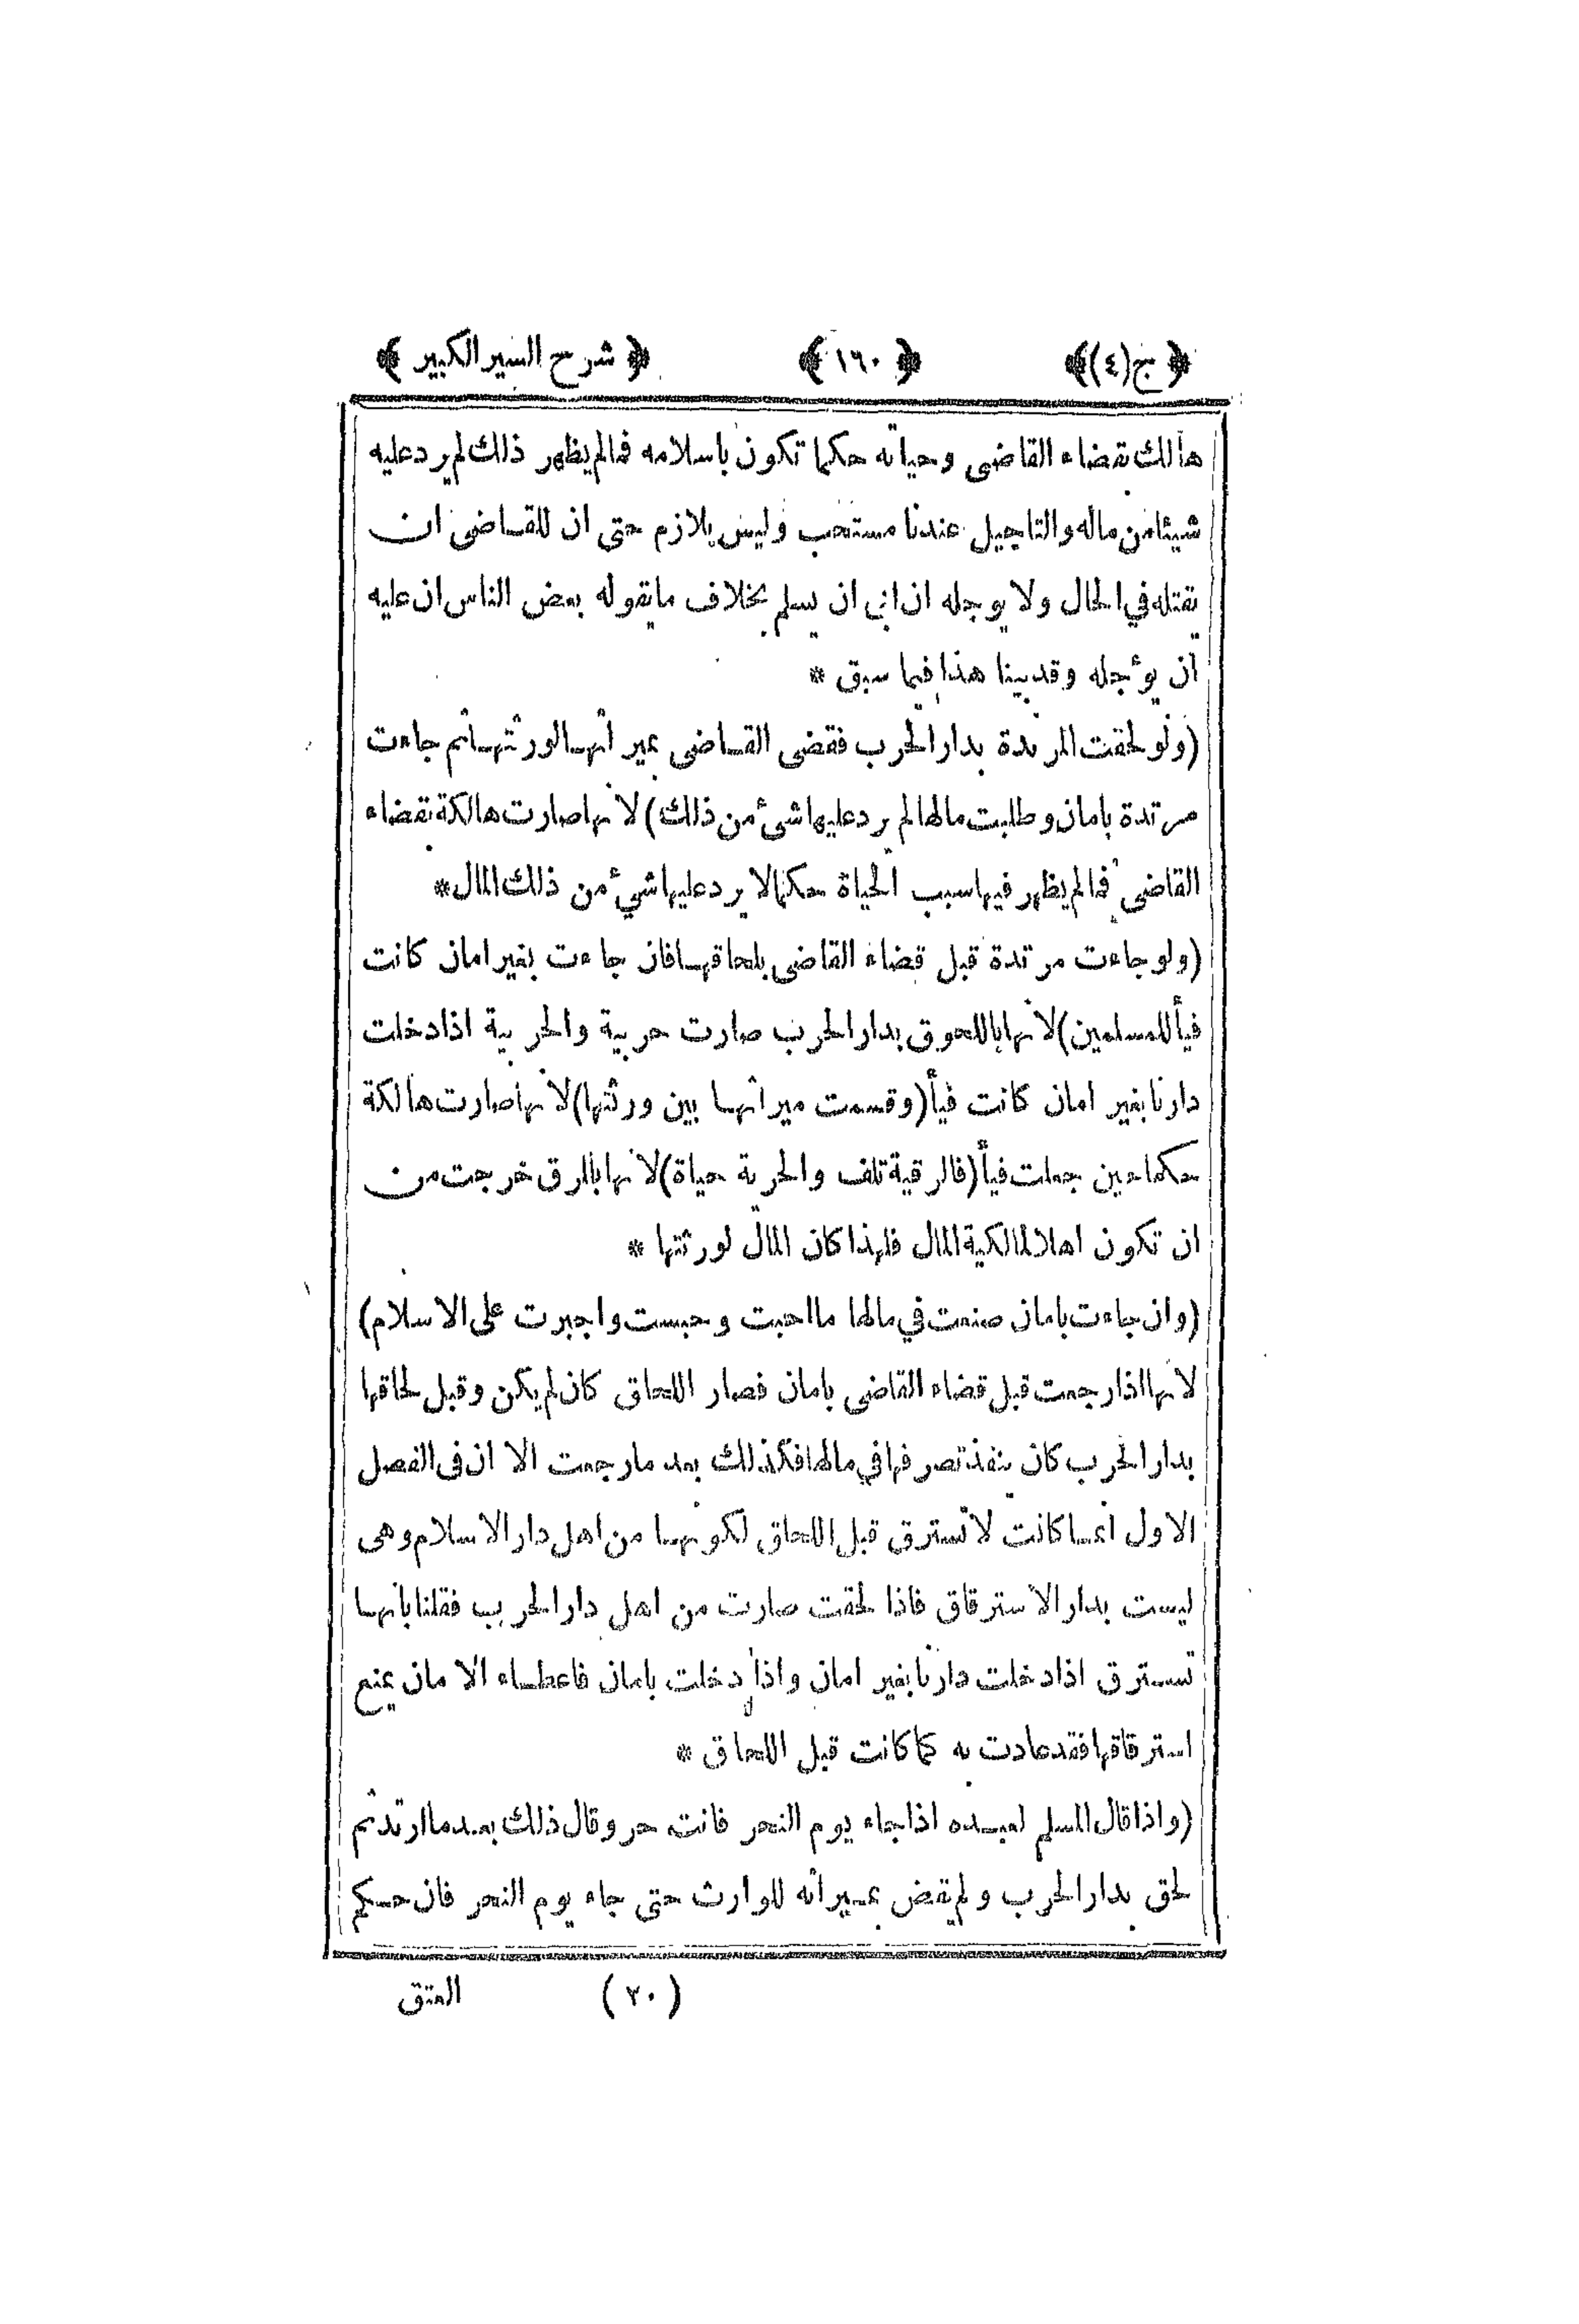 ﴿ ج(٤) ﴾ ﴿ ١٦٠ ﴾ ﴿ شرح السير الكبير ﴾
هالك بقضاء القاضى وحياته حكما تكون باسلامه فمالم يظهر ذلك لم يرد عليه
شيئا من ماله والتاجيل عندنا مستحب وليس بلازم حتى ان للقاضى ان
يقتله في الحال ولا يوجله ان ابى ان يسلم بخلاف ما يقوله بعض الناس ان عليه
ان يؤجله وقد بينا هذا فيما سبق *
(ولو لحقت المرتدة بدار الحرب فقضى القاضى بميراثها لورثتها ثم جاءت
مرتدة بامان وطلبت مالها لم يرد عليها شئ من ذلك) لانها صارت هالكة بقضاء
القاضى فمالم يظهر فيها سبب الحياة حكما لا يرد عليها شئ من ذلك المال *
(ولو جاءت مرتدة قبل قضاء القاضى بلحاقها فان جاءت بغير امان كانت
فيأ للمسلمين) لانها باللحوق بدار الحرب صارت حربية والحربية اذا دخلت
دارنا بغير امان كانت فيأ (وقسمت ميراثها بين ورثتها) لانها صارت هالكة
حكما حين جعلت فيأ (فالرقية تلف والحرية حياة) لانها بالرق خرجت من
ان تكون اهلا لمالكية المال فلهذا كان المال لورثتها *
(وان جاءت بامان صنعت في مالها ما احبت وحبست واجبرت على الاسلام)
لانها اذا رجعت قبل قضاء القاضى بامان فصار اللحاق كان لم يكن وقبل لحاقها
بدار الحرب كان ينفذ تصرفها في مالها فكذلك بعد ما رجعت الا ان فى الفصل
الاول انما كانت لا تسترق قبل اللحاق لكونها من اهل دار الاسلام وهى
ليست بدار الاسترقاق فاذا لحقت صارت من اهل دار الحرب فقلنا بانها
تسترق اذا دخلت دارنا بغير امان واذا دخلت بامان فاعطاء الامان يمنع
استرقاقها فقد عادت به كما كانت قبل اللحاق *
(واذا قال المسلم لعبده اذا جاء يوم النحر فانت حر وقال ذلك بعد ما ارتد ثم
لحق بدار الحرب ولم يقض بميراثه للوارث حتى جاء يوم النحر فان حكم
(٢٠) العتق